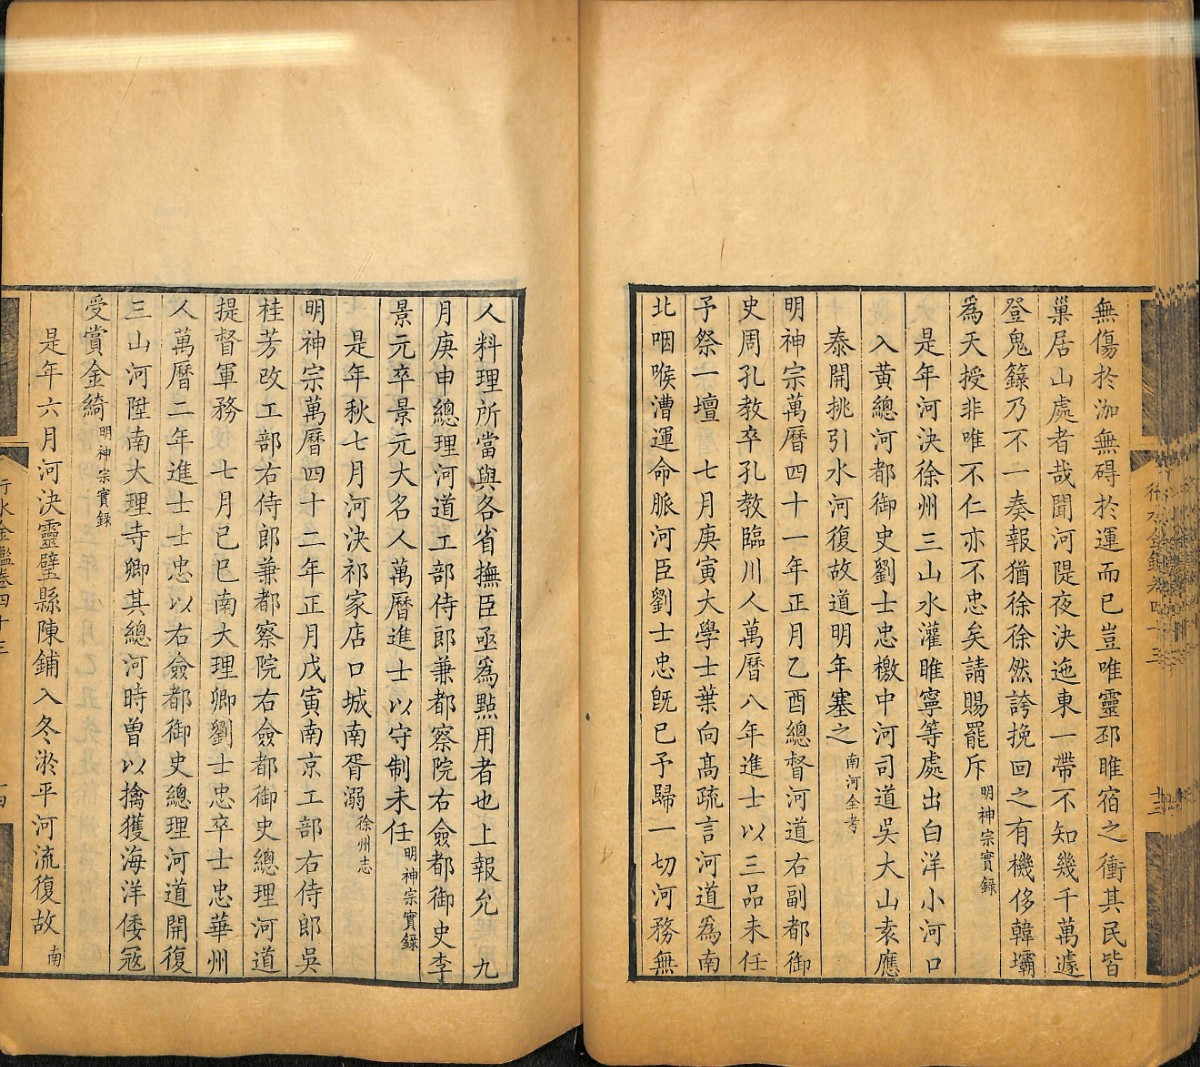 無傷於泇無碍於運而已豈唯靈邳睢宿之衝其民皆
巢居山處者哉聞河隄夜決迤東一帶不知幾千萬遽
登鬼籙乃不一奏報猶徐徐然誇挽回之有機侈韓壩
爲天授非唯不仁亦不忠矣請賜罷斥明神宗實錄
是年河決徐州三山水灌睢寧等處出白洋小河口
入黃總河都御史劉士忠檄中河司道吳大山袁應
泰開挑引水河復故道明年塞之南河全考
明神宗萬曆四十一年正月乙酉總督河道右副都御
史周孔教卒孔教臨川人萬曆八年進士以三品未任
予祭一壇七月庚寅大學士葉向高疏言河道爲南
北咽喉漕運命脈河臣劉士忠旣已予歸一切河務無
人料理所當與各省撫臣亟爲點用者也上報允九
月庚申總理河道工部侍郎兼都察院右僉都御史李
景元卒景元大名人萬曆進士以守制未任明神宗實錄
是年秋七月河決祁家店口城南胥溺徐州志
明神宗萬曆四十二年正月戊寅南京工部右侍郎吳
桂芳改工部右侍郎兼都察院右僉都御史總理河道
提督軍務七月己巳南大理卿劉士忠卒士忠華州
人萬曆二年進士士忠以右僉都御史總理河道開復
三山河陞南大理寺卿其總河時曾以擒獲海洋倭寇
受賞金綺明神宗實錄
是年六月河決靈璧縣陳鋪入冬淤平河流復故南
行水金鑑卷四十三